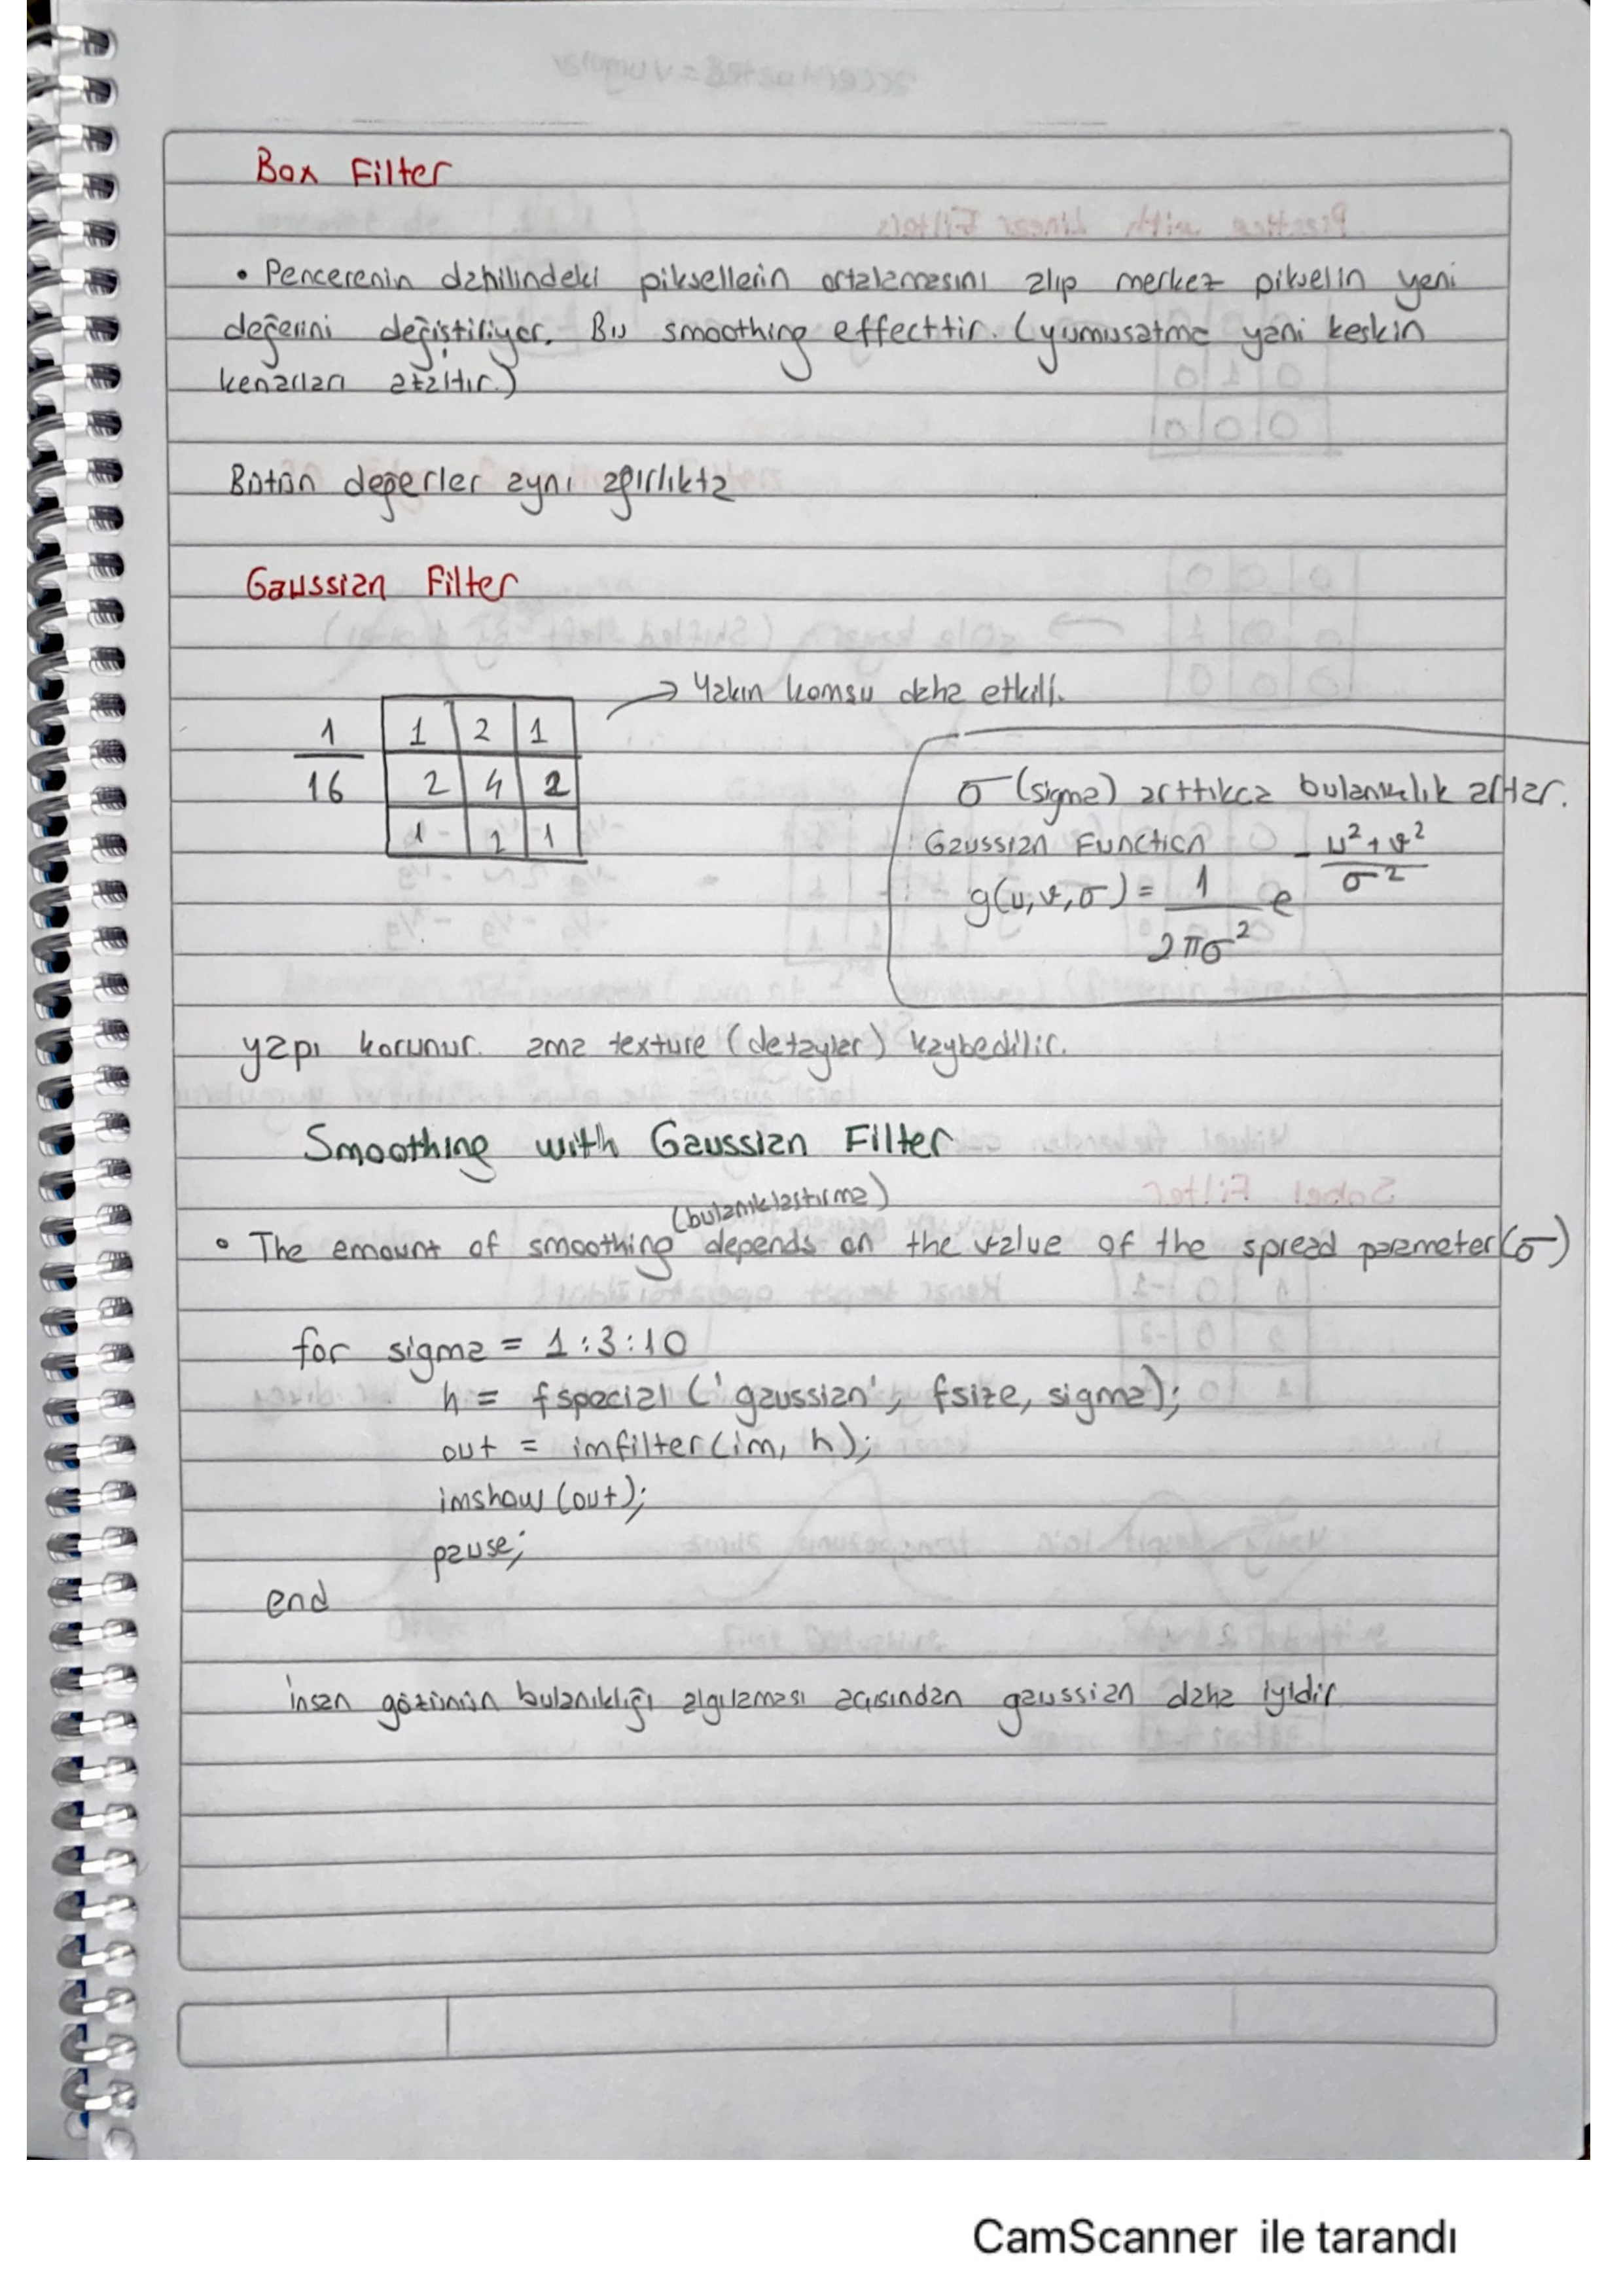 Box Filter
• Pencerenin dahilindeki piksellerin ortalamasını alıp merkez pikselin yeni
değerini değiştiriliyor. Bu smoothing effecttir. (yumusatma yani keskin
kenarları azaltır.)
Bütün değerler aynı ağırlıkta
Gaussian Filter
→ Yakın komsu daha etkili.
1 1 2 1
16 2 4 2
1 2 1
σ (sigma) arttıkca bulanıklık artar.
Gaussian Function
g(u,v,σ) = 1/2πσ² e^-(u²+v²)/σ²
yapı korunur. ama texture (detaylar) kaybedilir.
Smoothing with Gaussian Filter
(bulanıklastırma)
• The amount of smoothing depends on the value of the spread parameter(σ)
for sigma = 1:3:10
h = fspecial('gaussian', fsize, sigma);
out = imfilter(im, h);
imshow(out);
pause;
end
insan gözünün bulanıklığı algılaması açısından gaussian daha iyidir.
CamScanner ile tarandı